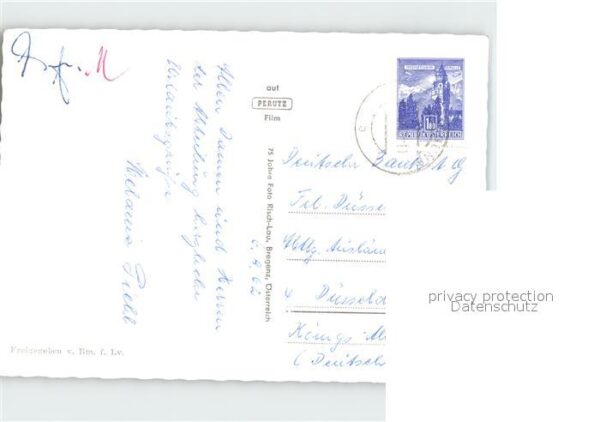 Allen Damen und Herren
der Abteilung herzliche
Urlaubsgrüße
Melanie
auf
PERUTZ
Film
75 Jahre Foto Risch-Lau, Bregenz, Österreich
6. 9. 62
REPUBLIK ÖSTERREICH
Deutsche Bank A G
Fil. Düsse
Abtlg. Auslan
4 Düsseld
Königs
(Deutsch
Freigegeben v. Bm. f. Lv.
privacy protection
Datenschutz